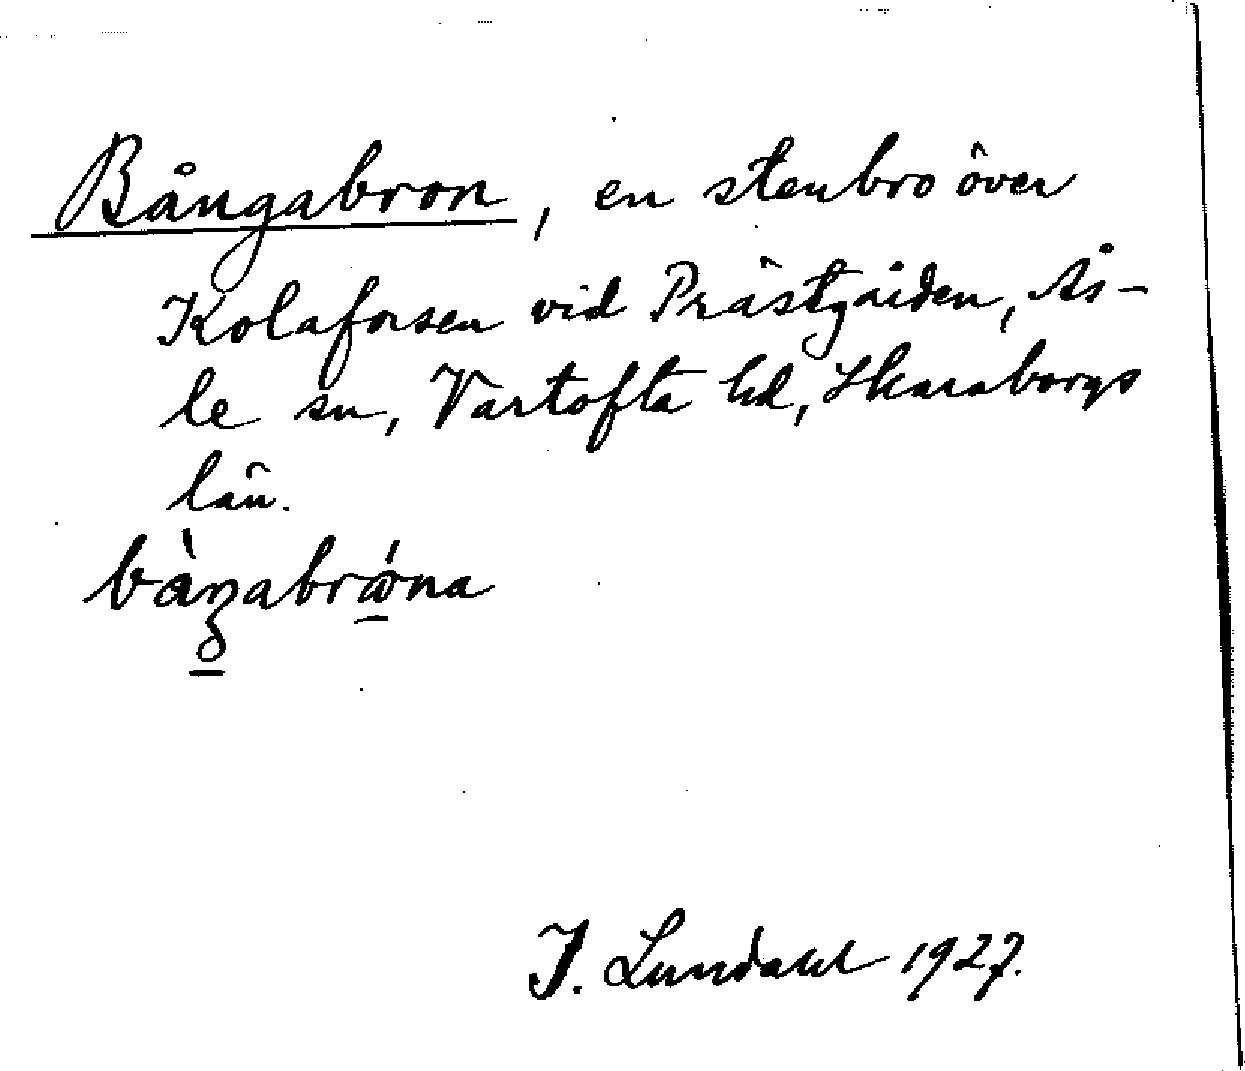 Bångabron, en stenbro över
Kolaforsen vid Prästgården, Ås-
le sn, Vartofta hd, Skaraborgs
län.
J. Lundahl 1927.